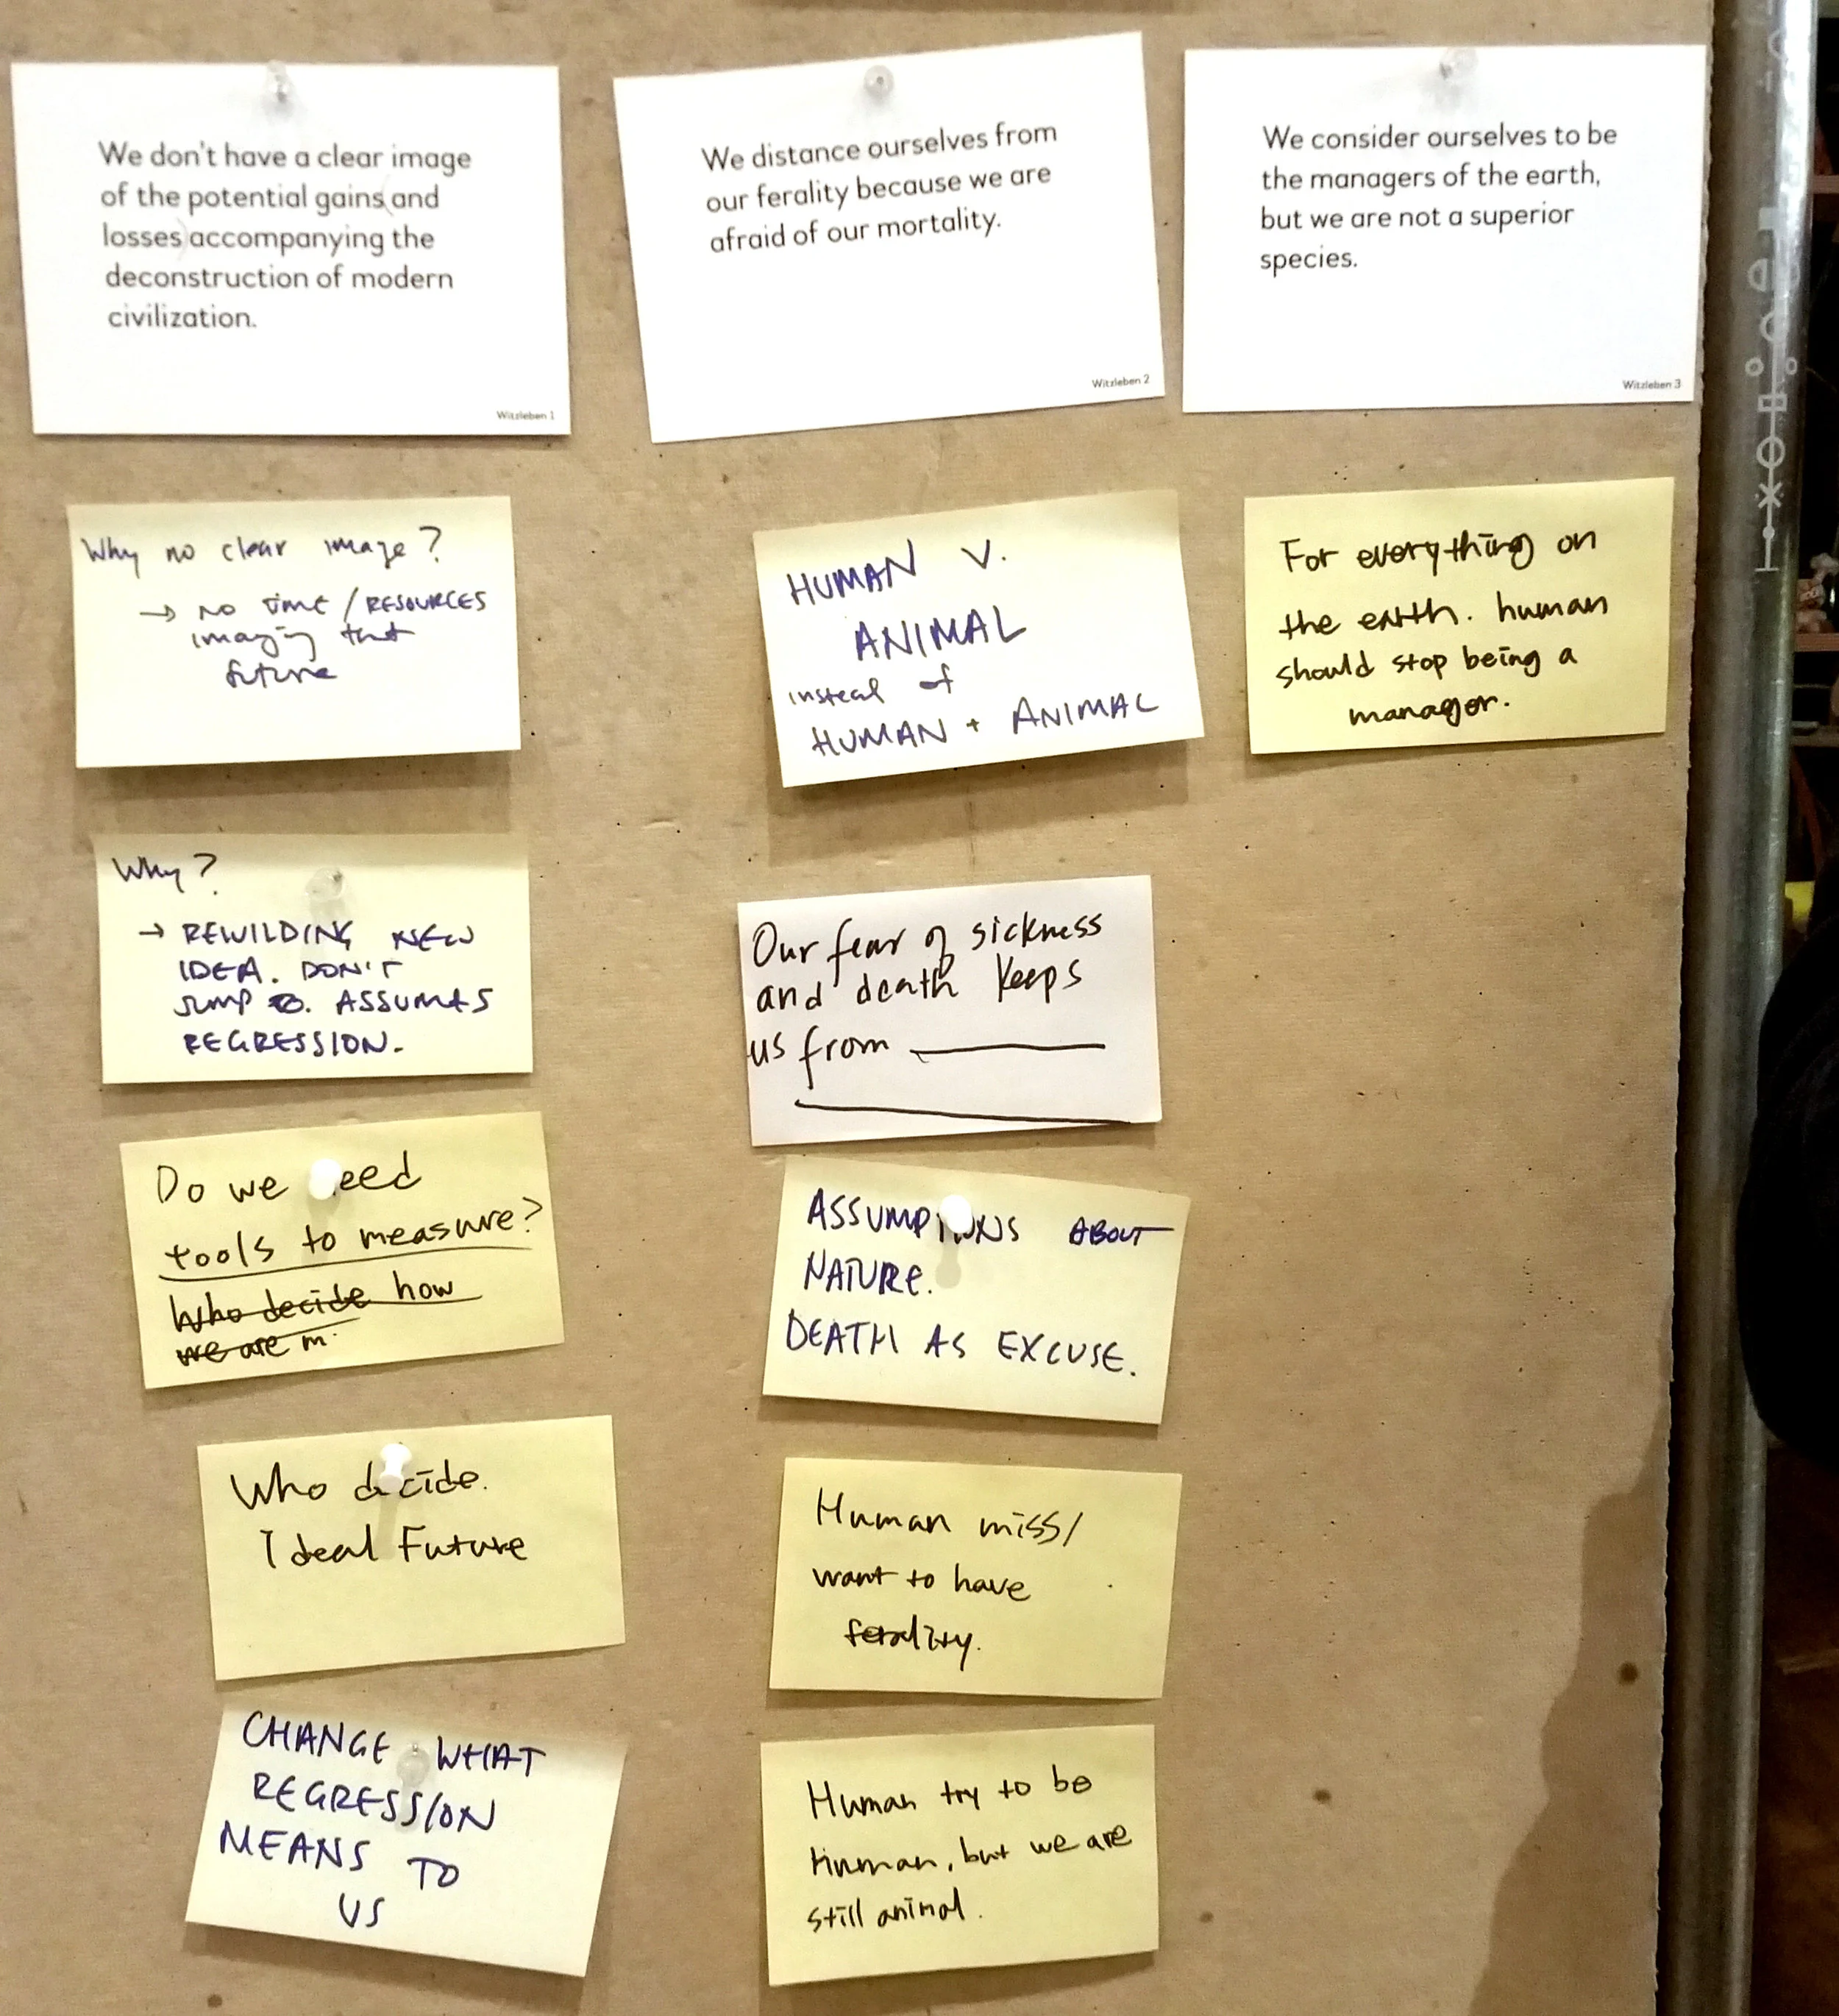 We don't have a clear image
of the potential gains and
losses accompanying the
deconstruction of modern
civilization.
Witzleben 1
We distance ourselves from
our ferality because we are
afraid of our mortality.
Witzleben 2
We consider ourselves to be
the managers of the earth,
but we are not a superior
species.
Witzleben 3
Why no clear image?
→ NO time / RESOURCES
imaging that
future
Why?
→ REWILDING NEW
IDEA. DON'T
JUMP TO. ASSUMES
REGRESSION.
Do we need
tools to measure?
Who decide how
we are m.
Who decide.
Ideal Future
CHANGE WHAT
REGRESSION
MEANS TO
US
HUMAN V.
ANIMAL
instead of
HUMAN + ANIMAL
Our fear of sickness
and death keeps
us from
ASSUMPTIONS ABOUT
NATURE.
DEATH AS EXCUSE.
Human miss/
want to have
ferality.
Human try to be
Human, but we are
still animal.
For everything on
the earth. human
should stop being a
manager.